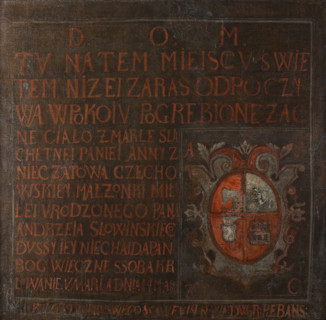 D O M
TV NA TEM MIEISCV S WIE
TEM NIZEI ZARAS ODPOCZY
WA W POKOIV POGREBIONE ZAC
NE CIALO ZMARLE SLA
CHETNEI PANIEI ANNY Z
NIECZATOWA CZECHO
WSKIEI MALZONKI MIL
LEI VRODZONEGO PAN
ANDRZEIA SLOWINSKIEC
DVSSY IEY NIECHAI DA PAN
BOG WIECZNE SSOBA KR
LOWANIE VMARLA DNIA
A
Z
C